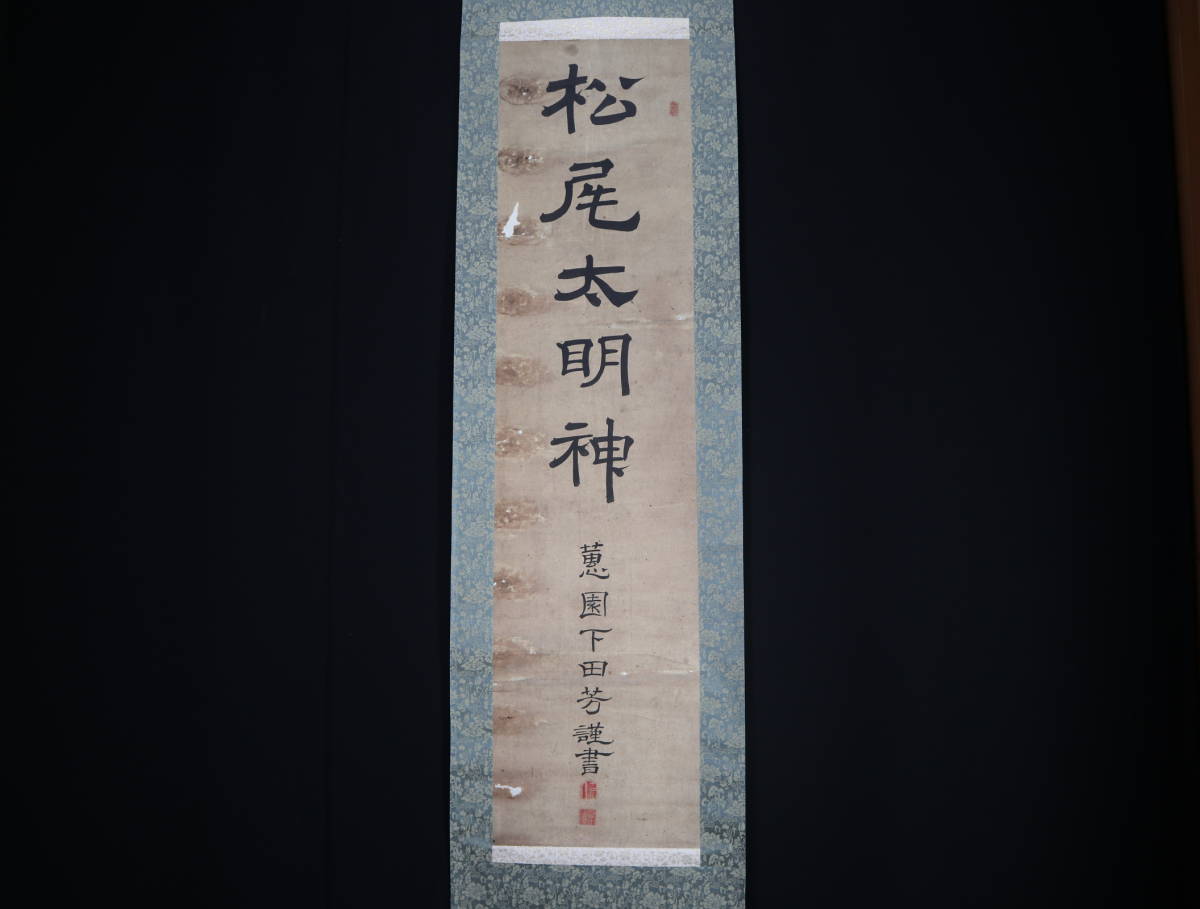 松尾太明神
蕙園下田芳謹書